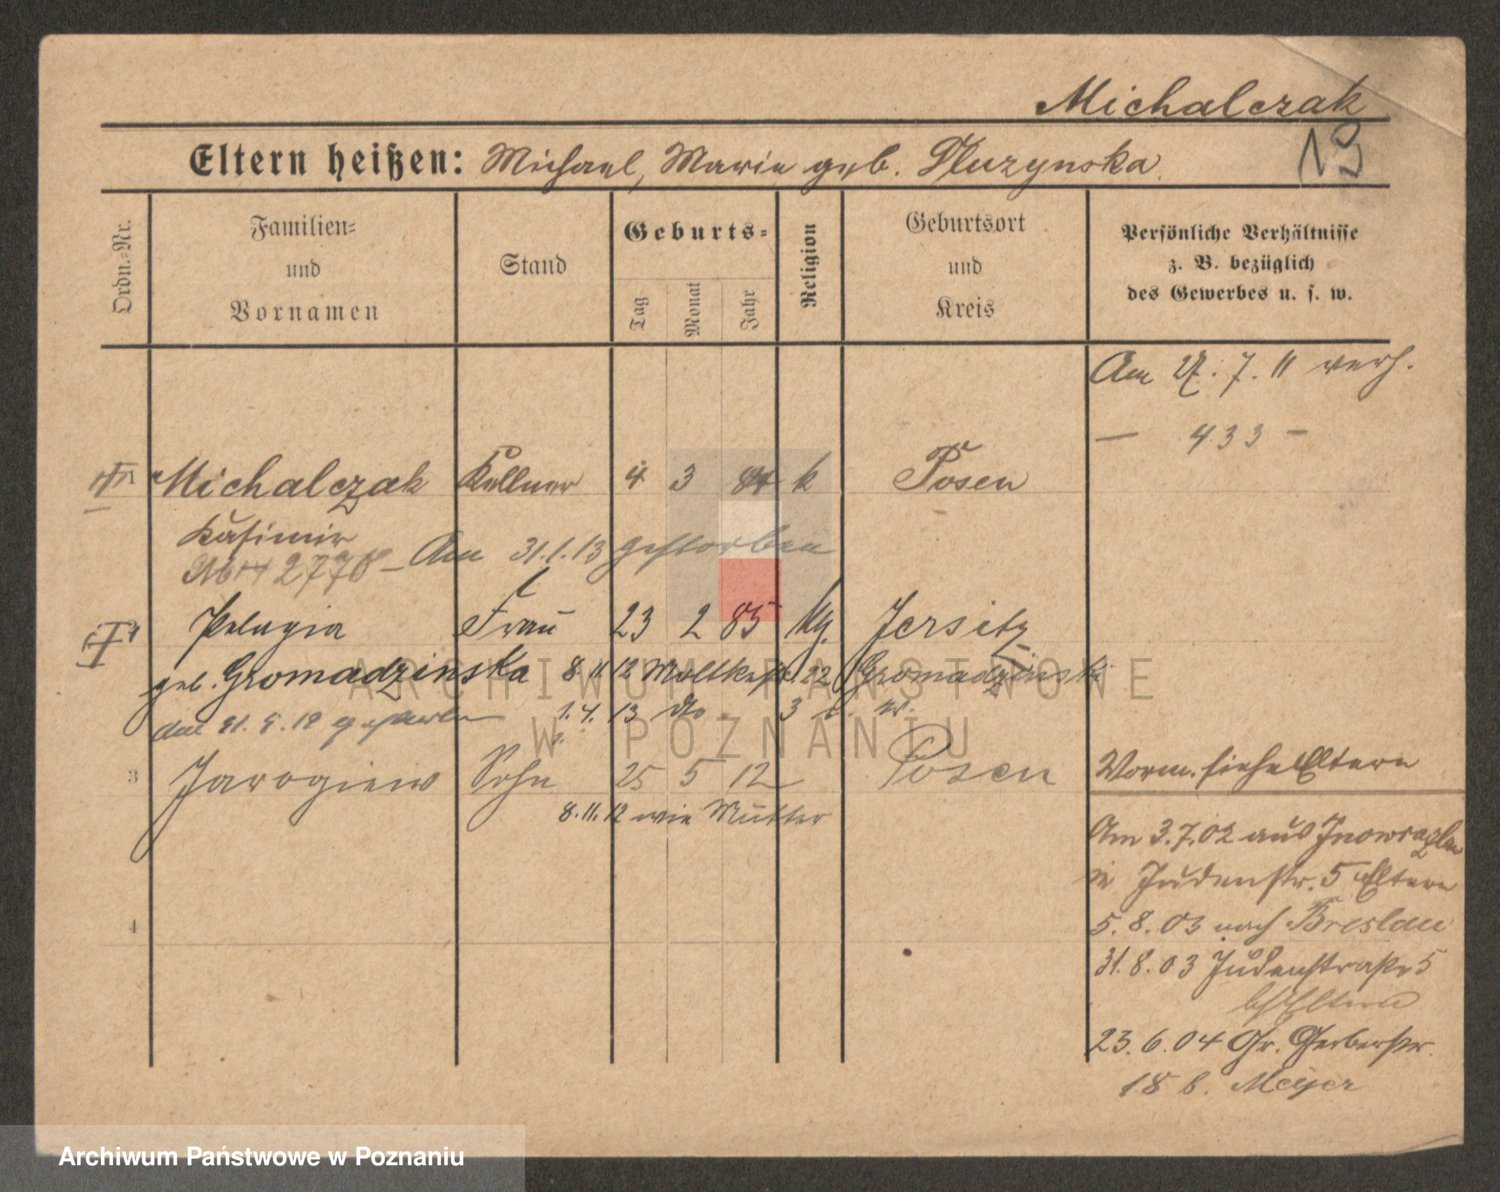 Michalczak
Eltern heißen: Michael, Marie geb. Pluzynska.
19
Ordn.-Nr.
Familien=
und
Vornamen
Stand
Geburts=
Tag
Monat
Jahr
Religion
Geburtsort
und
Kreis
Persönliche Verhältnisse
z. B. bezüglich
des Gewerbes u. s. w.
Am 27. 7. 11 verh.
— 433 —
Michalczak Kellner 4 3 84 k Posen
Kasimir
2778 — Am 31.1.13 gestorben
Pelagia Frau 23 2 85 kg. Jersitz
geb. Gromadzinska 8.11.12 Moltkestr 22 Gromadzinski
1.4.13 do 3
3 Jarogiew Sohn 25 5 12 Posen
8.11.12 wie Mutter
Vorm. siehe Eltern
Am 3.7.02 aus Inowrazlaw
Judenstr. 5 Eltern
5.8.03 nach Breslau
31.8.03 Judenstraße 5
Eltern
23.6.04 Gr. Gerberstr.
18 b. Meyer
4
ARCHIWUM PAŃSTWOWE
W POZNANIU
Archiwum Państwowe w Poznaniu